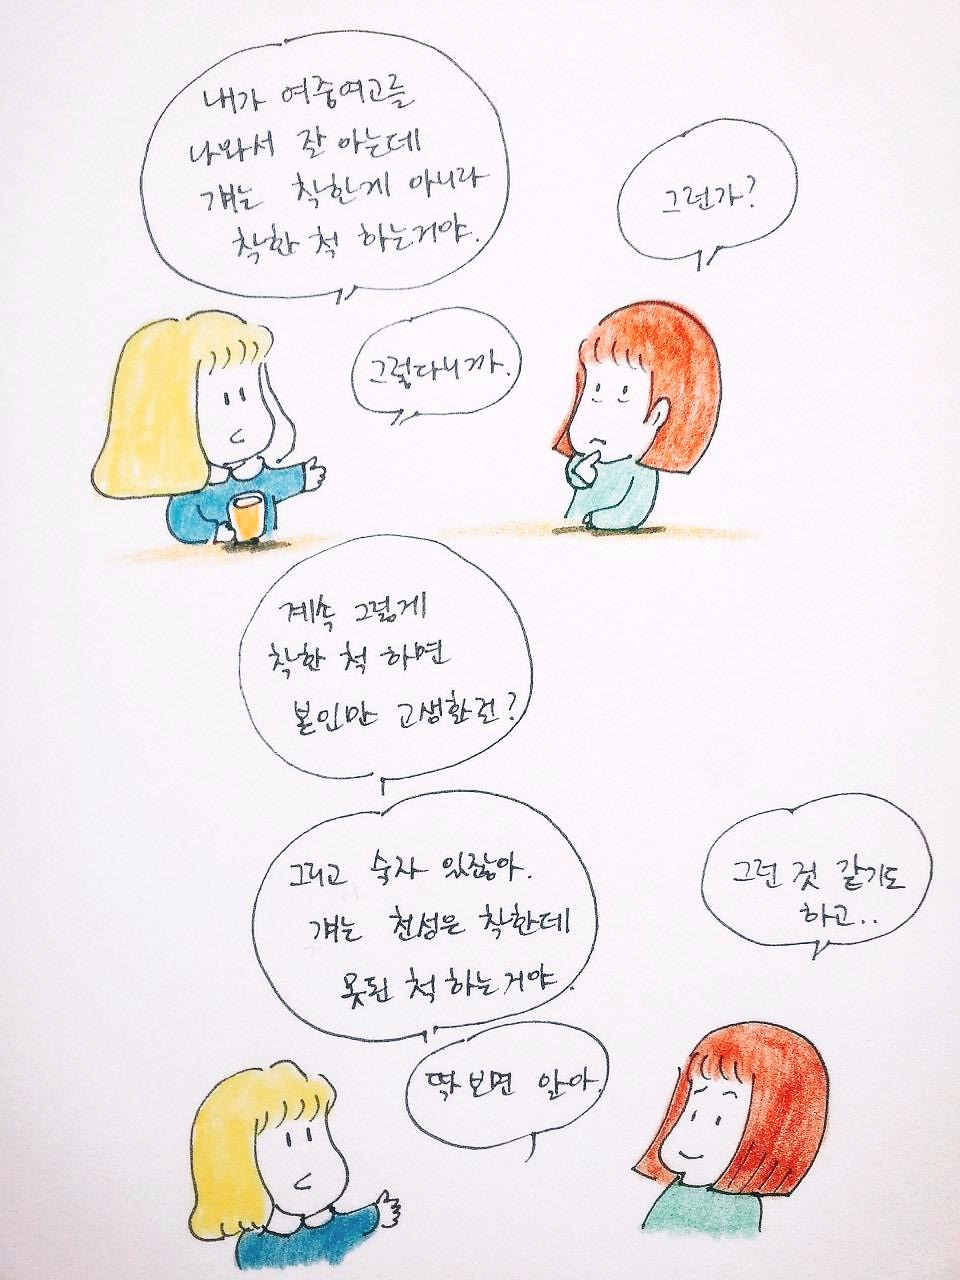 내가 여중여고를
나와서 잘 아는데
걔는 착한게 아니라
착한 척 하는거야.
그런가?
그렇다니까.
계속 그렇게
착한 척 하면
본인만 고생할걸?
그리고 숙자 있잖아.
걔는 천성은 착한데
못된 척 하는거야.
그런 것 같기도
하고..
딱 보면 알아.